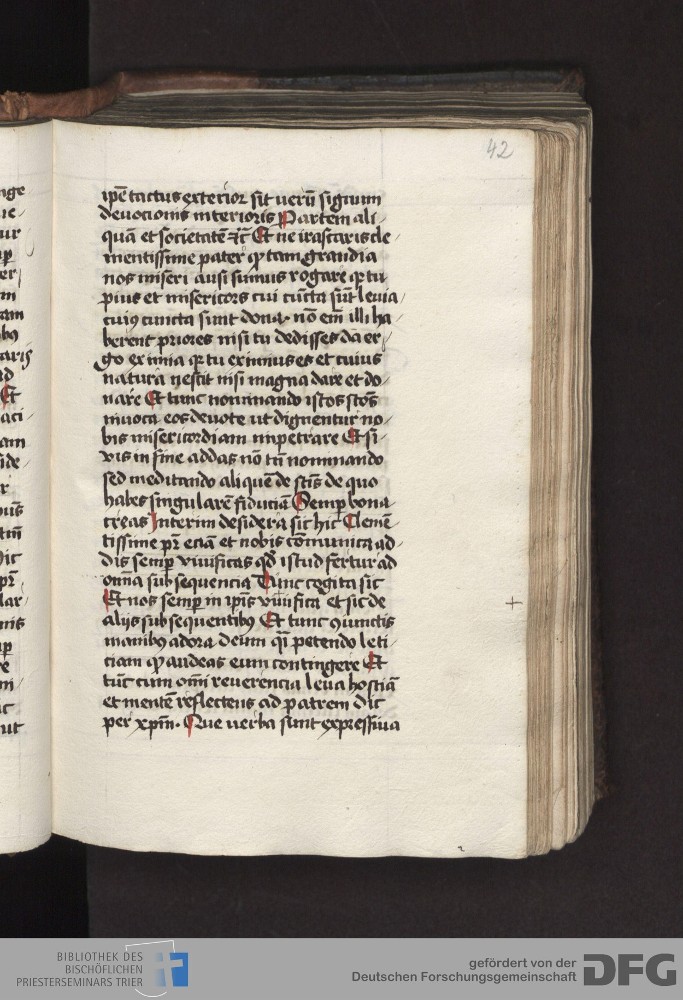 42
ip̄e tactus exterior sit uerū signum
deuocionis interioris Partem ali
quā et societatē ⁊c̄ Et ne irascaris cle
mentissime pater qꝫ tam grandia
nos miseri ausi sumus rogare qꝫ tu
pius et misericors cui cūcta sūt leuia
cuiꝰ cuncta sunt dona nō em̄ illi ha
berent priores nisi tu dedisses da er
go eximia qꝛ tu eximius es et cuius
natura nescit nisi magna dare et do
nare Et tunc nominando istos sc̄os
inuoca eos deuote ut dignentur no
bis misericordiam impetrare Et si
vis in fine addas nō tn̄ nominando
sed meditando aliquē de sc̄tis de quo
habes singularē fiduciā Semꝑ bona
creas Interim desidera sic hic Clemē
tissime pr̄ eciā et nobis cōmunica ad
dis semꝑ viuificas qd̄ istud fertur ad
omīa subsequencia Tunc cogita sic
Et nos semꝑ in ip̄is viuifica et sic de
aliis subsequentibꝰ Et tunc iunctis
manibꝰ adora deum qͥ petendo leti
ciam qꝫ audeas eum contingere Et
tūc cum om̄i reuerencia leua hostiā
et mentē reflectens ad patrem dic
per xp̄m. Que uerba sunt expressiua
BIBLIOTHEK DES
BISCHÖFLICHEN
PRIESTERSEMINARS TRIER
gefördert von der
Deutschen Forschungsgemeinschaft
DFG